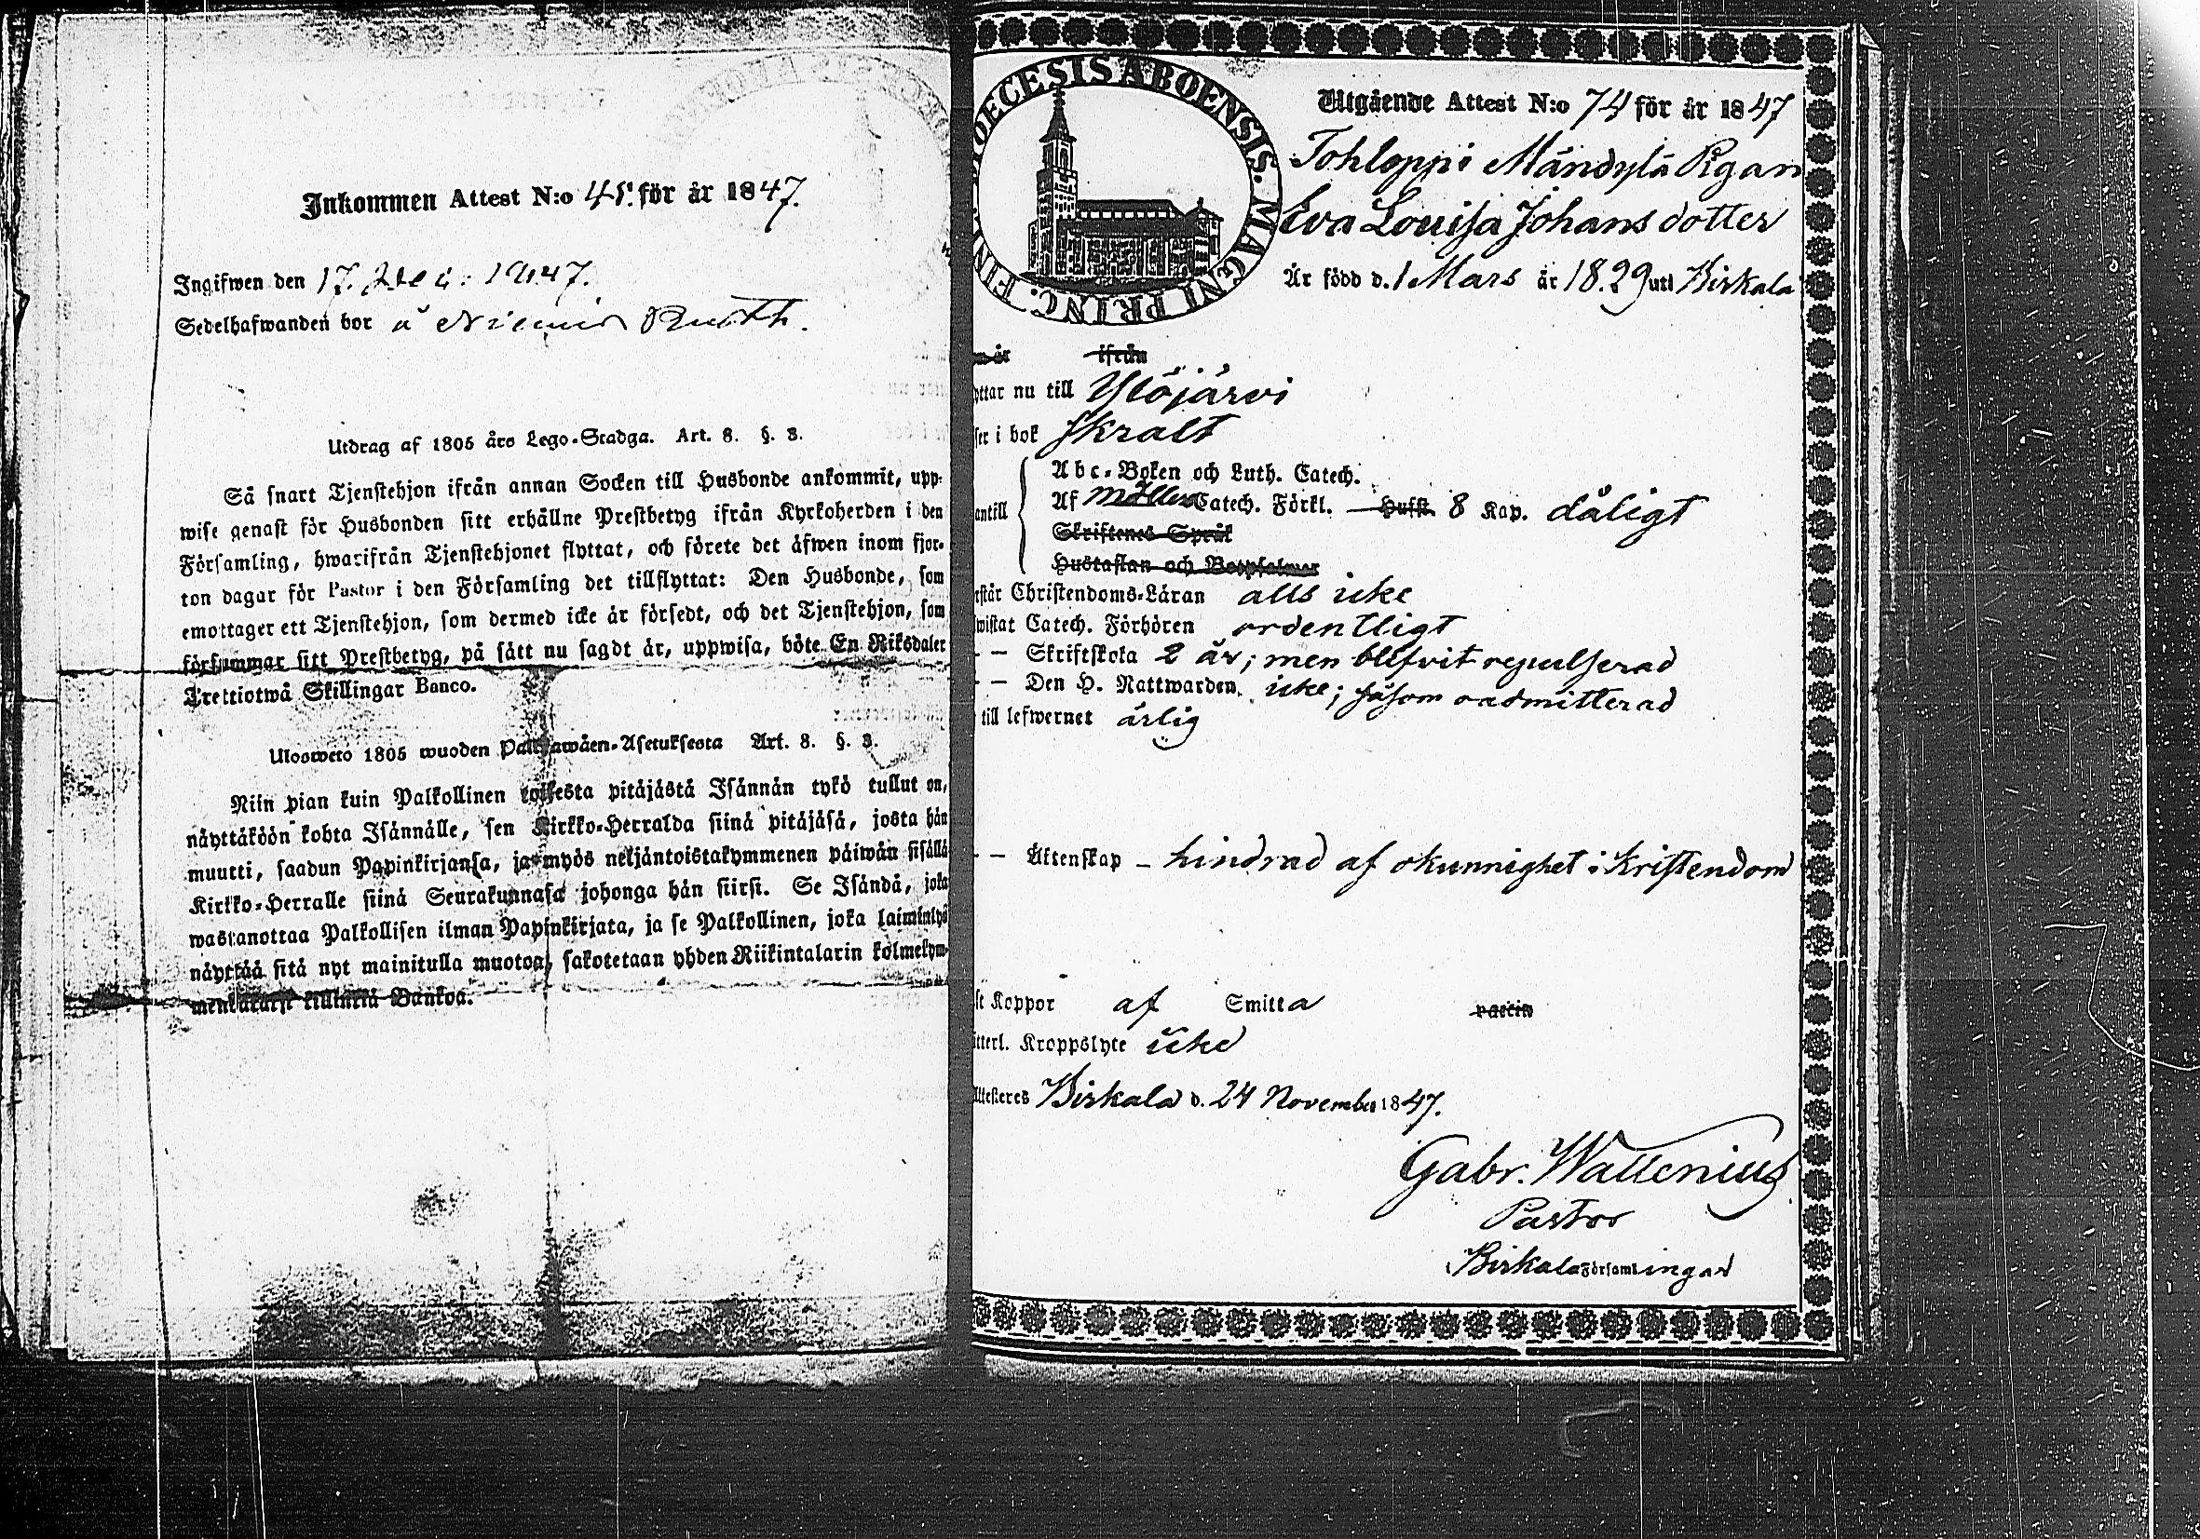 Inkommen Attest N:o 45. för år 1847.
Ingifwen den 17. Dec: 1847.
Sedelhafwanden bor å Niemis Rusth.
Utdrag af 1805 års Lego-Stadga. Art. 8. §. 3.
Så snart Tjenstehjon ifrån annan Socken till Husbonde ankommit, upp-
wise genast för Husbonden sitt erhållne Prestbetyg ifrån Kyrkoherden i den
Församling, hwarifrån Tjenstehjonet flyttat, och förete det äfwen inom fjor-
ton dagar för Pastor i den Församling det tillflyttat: Den Husbonde, som
emottager ett Tjenstehjon, som dermed icke är försedt, och det Tjenstehjon, som
försummar sitt Prestbetyg, på sätt nu sagdt är, uppwisa, böte En Riksdaler
Trettiotwå Skillingar Banco.
Ulosweto 1805 wuoden Palkkawäen-Asetuksesta Art. 8. §. 3.
Niin pian kuin Palkollinen toisesta pitäjästä Isännän tykö tullut on,
näyttäköön kohta Isännälle, sen Kirkko-Herralda siinä pitäjäsä, josta hän
muutti, saadun Papinkirjansa, ja myös neljäntoistakymmenen päiwän sisällä
Kirkko-Herralle siinä Seurakunnasa johonga hän siirsi. Se Isändä, joka
wastanottaa Palkollisen ilman Papinkirjata, ja se Palkollinen, joka laiminlyö
näyttää sitä nyt mainitulla muotoa, sakotetaan yhden Riikintalarin kolmekym-
menkaksi killinkiä Bankoa.
DIOECESIS ABOENSIS. MAGNI PRINC. FINL.
Utgående Attest N:o 74 för år 1847
Tohloppi Mändylä Pigan
Eva Louisa Johans dotter
Är född d. 1 Mars år 1829 uti Birkala
år ifrån
yttar nu till Ylöjärvi
ser i bok skralt
antill
Abc-Boken och Luth. Catech.
Af Möllers Catech. Förkl. Hufst. 8 Kap. dåligt
Skriftenes Språk
Hustaflan och Botpsalmer
rstår Christendoms-Läran alls icke
wistat Catech. Förhören ordentligt
- - Skriftskola 2 år; men blifvit repulserad
- - Den H. Nattwarden. icke; såsom oadmitterad
till lefwernet ärlig
- - Äktenskap - hindrad af okunnighet i Kristendom
ft Koppor af Smitta vaccin
tterl. Kroppslyte icke
Attesteres Birkala d. 24 November 1847.
Gabr. Wallenius
Pastor
Birkala Församlingar